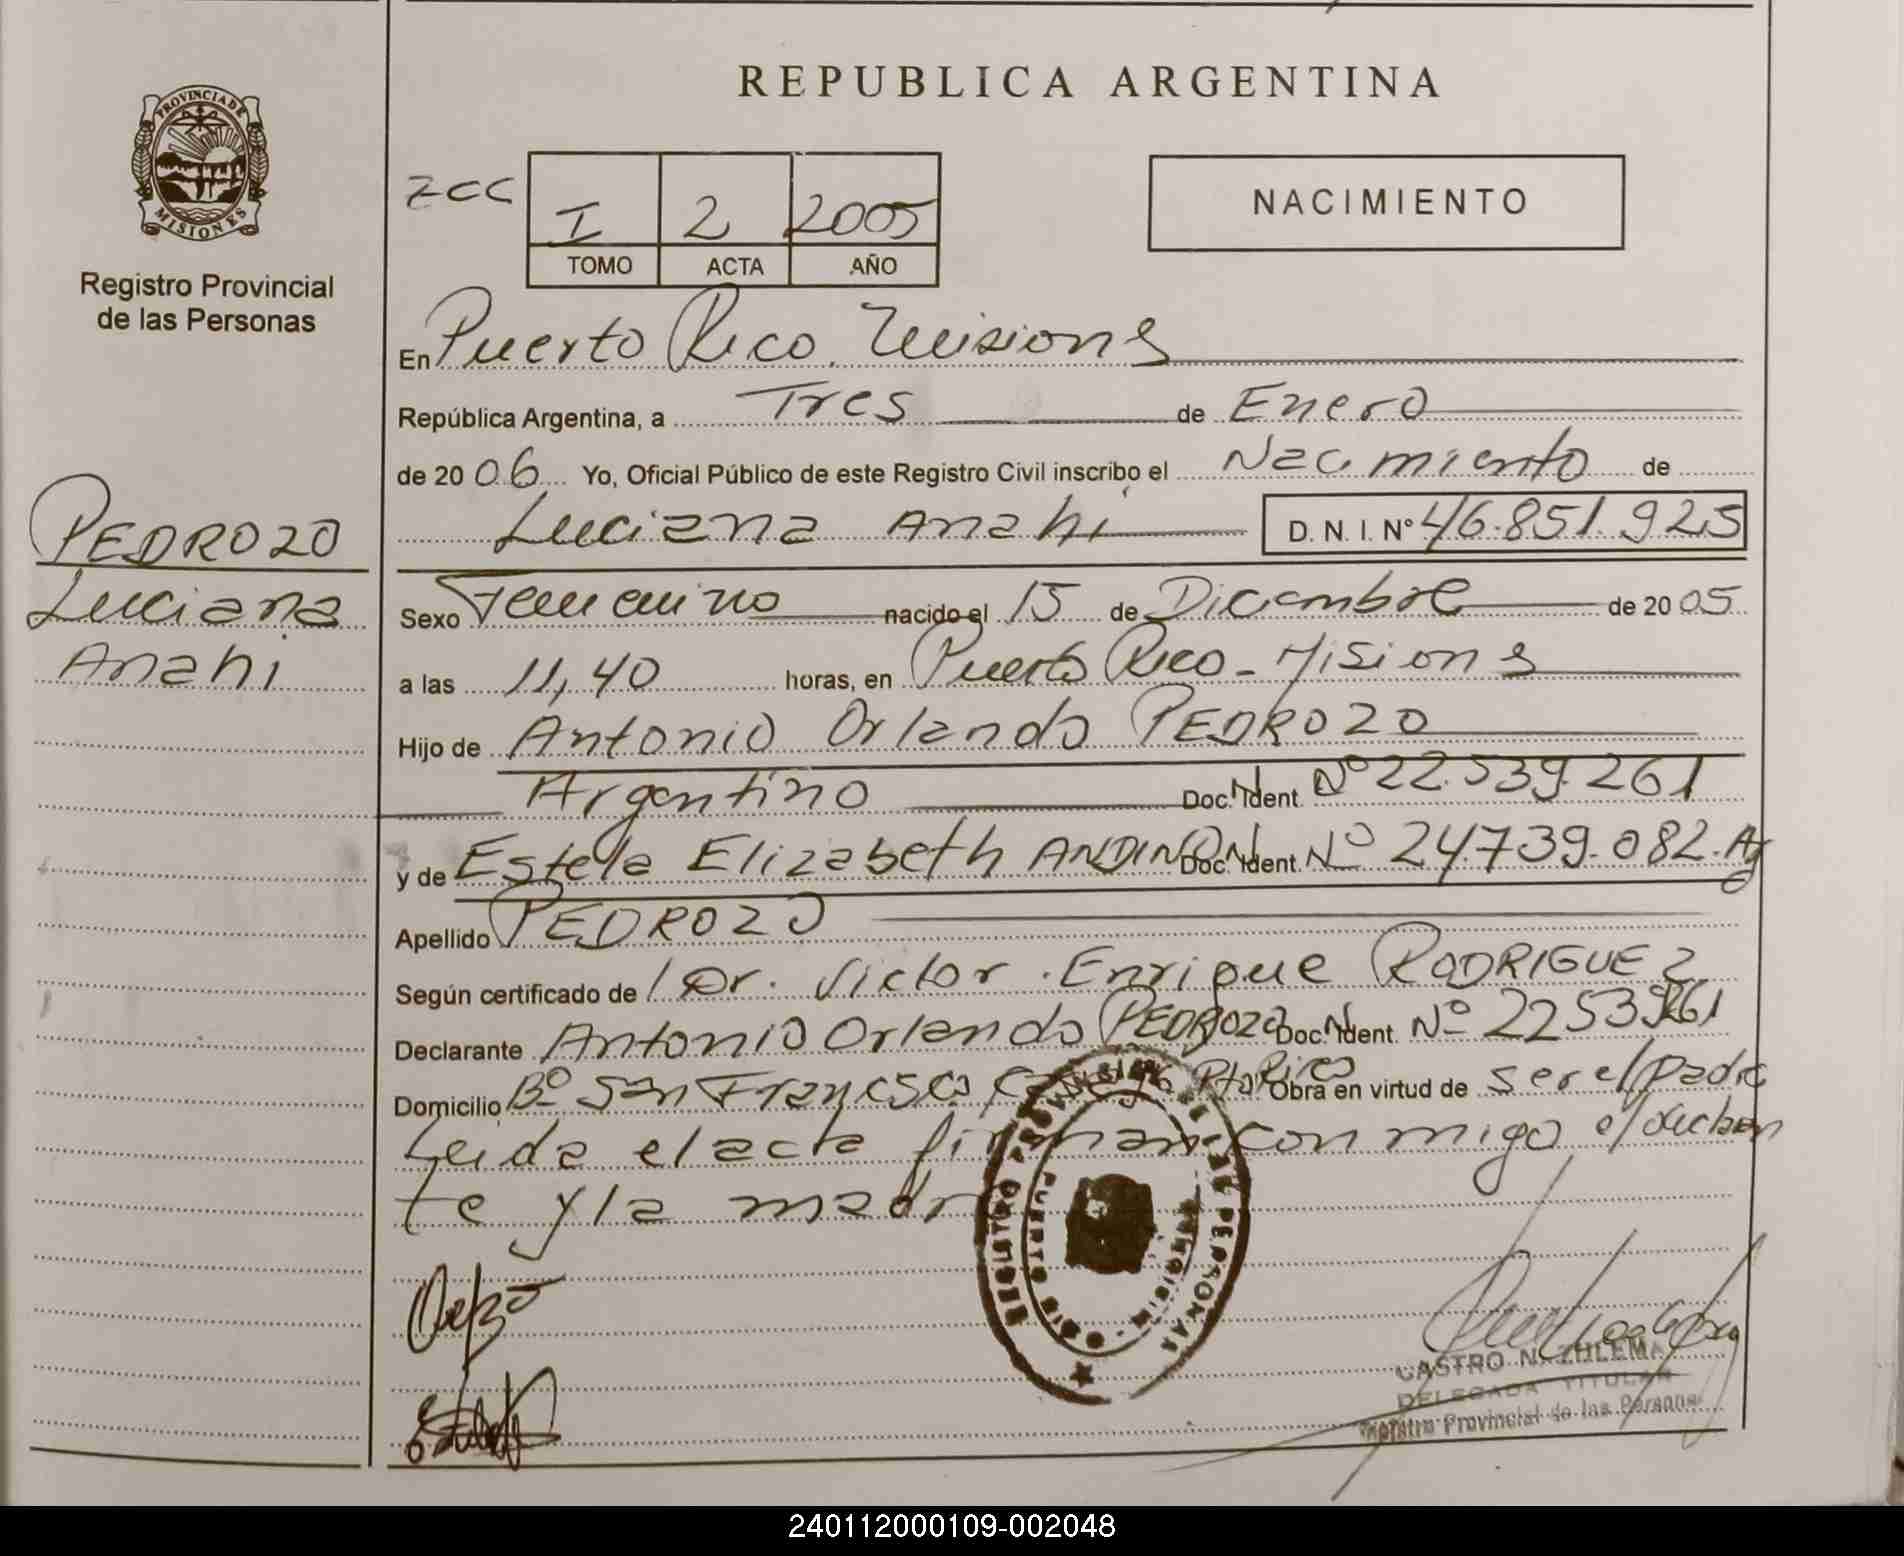 REPUBLICA ARGENTINA
PROVINCIA DE
MISIONES
Registro Provincial
de las Personas
ZCC
I 2 2005
TOMO ACTA AÑO
NACIMIENTO
En Puerto Rico. Misiones
República Argentina, a Tres de Enero
de 20 06 Yo, Oficial Público de este Registro Civil inscribo el Nacimiento de
Luciana Anahi D. N. I. N° 46.851.925
PEDROZO
Luciana
Anahi
Sexo Femenino nacido el 15 de Diciembre de 20 05
a las 11,40 horas, en Puerto Rico - Misiones
Hijo de Antonio Orlando PEDROZO
Argentino Doc. Ident. Nº 22.539.261
y de Estela Elizabeth ANDINO Doc. Ident. Nº 24.739.082. Arg
Apellido PEDROZO
Según certificado de Dr. Victor Enrique RODRIGUEZ
Declarante Antonio Orlando PEDROZO Doc. Ident. Nº 22539261
Domicilio Bº San Francisco Pto Rico Obra en virtud de ser el padre
Leida el acta firman con migo el declaran
te y la madre
CASTRO N. ZULEMA
DELEGADA TITULAR
Registro Provincial de las Personas
240112000109-002048